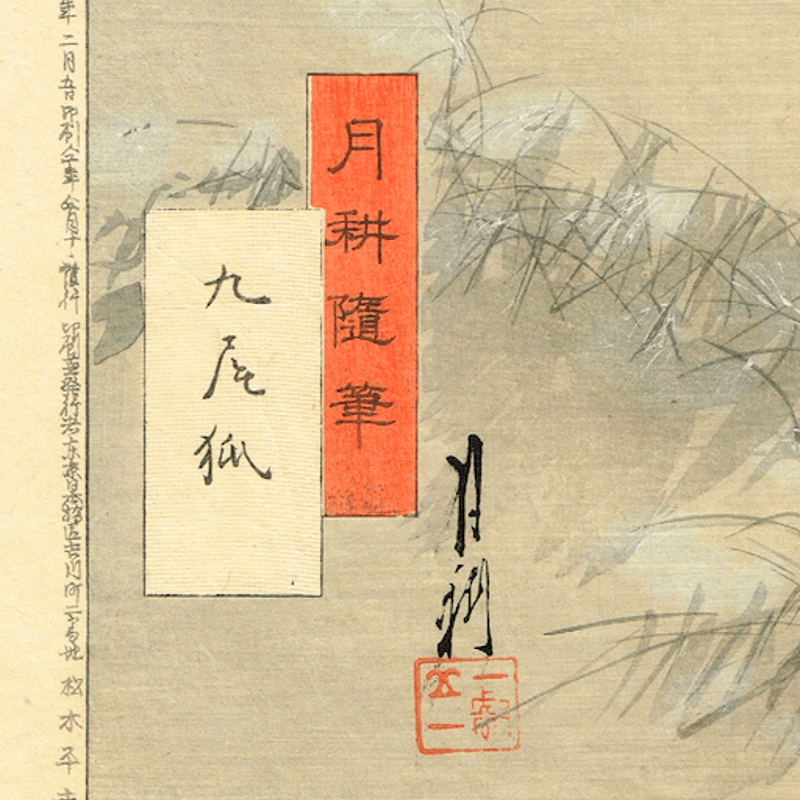 月耕
月耕隨筆
九尾狐
年二月五日印刷仝年仝月十日發行 印刷兼發行者東京日本橋区吉川町二番地 松木平